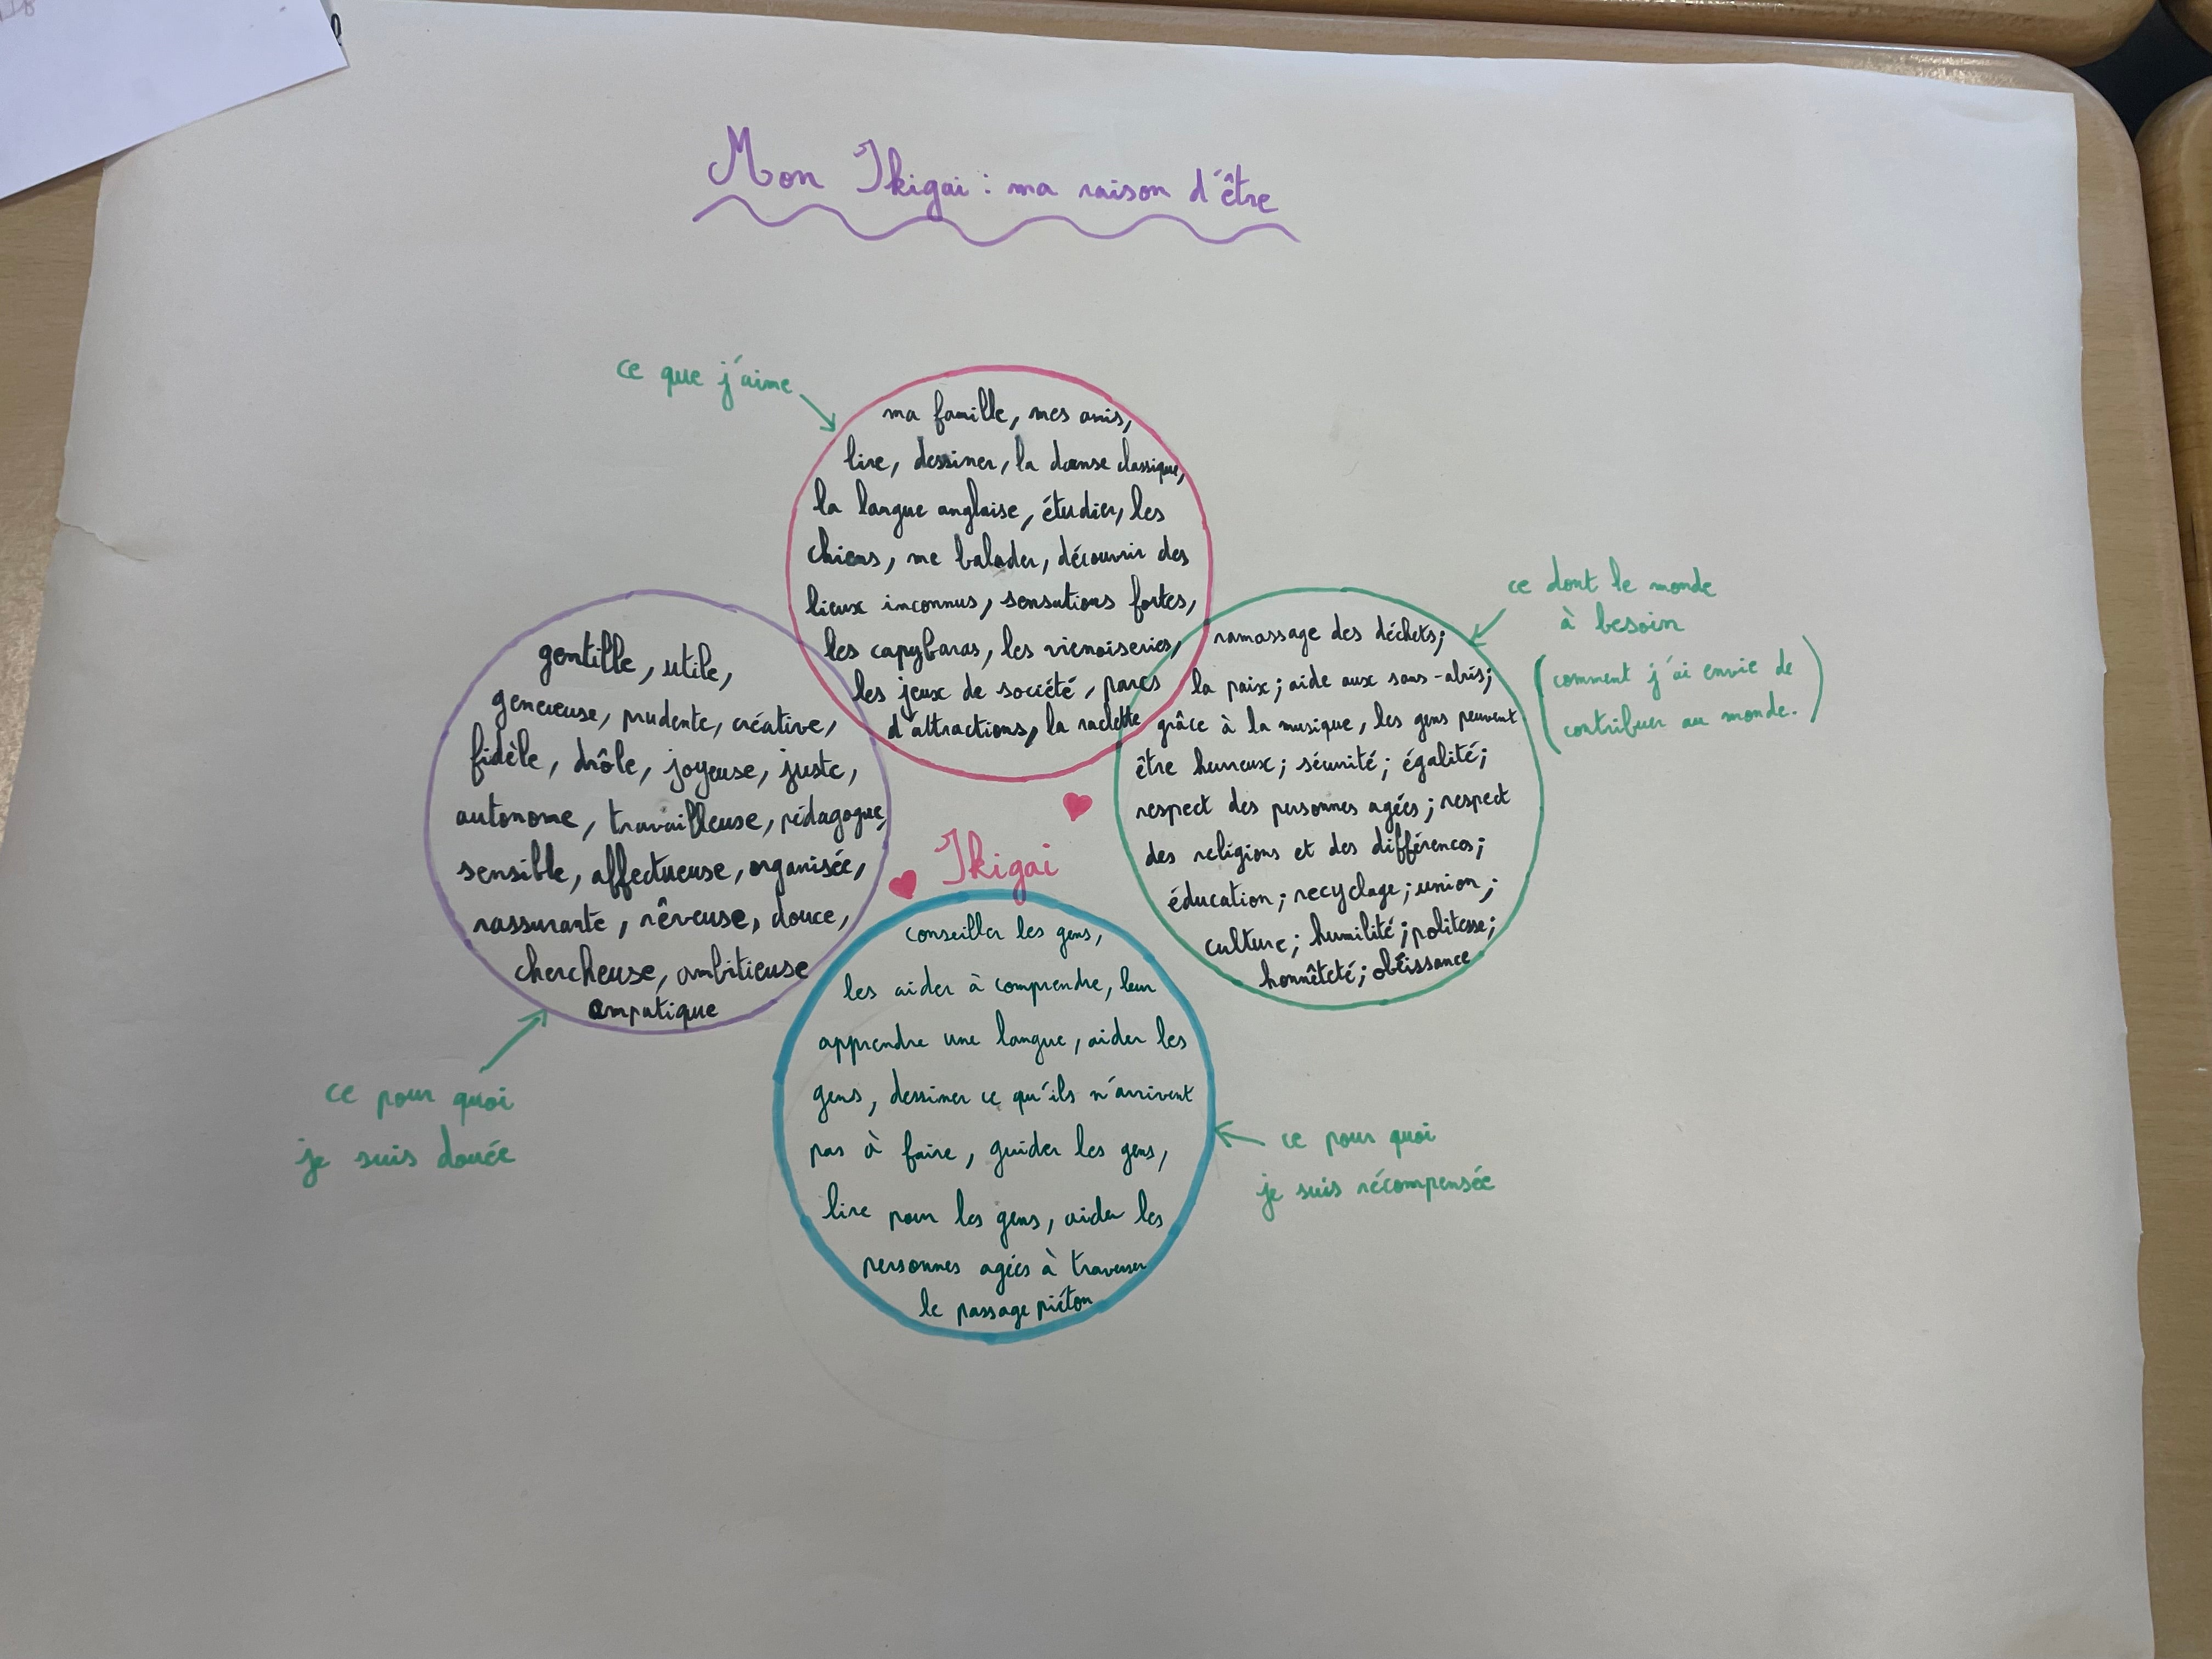 Mon Ikigai : ma raison d'être
ce que j'aime
ma famille, mes amis,
lire, dessiner, la danse classique,
la langue anglaise, étudier, les
chiens, me balader, découvrir des
lieux inconnus, sensations fortes,
les capybaras, les vienoiseries,
les jeux de société, parcs
d'attractions, la raclette
ce dont le monde
à besoin
(comment j'ai envie de
contribuer au monde.)
ramassage des déchets;
la paix; aide aux sans-abris;
grâce à la musique, les gens peuvent
être heureux; sécurité; égalité;
respect des personnes agées; respect
des religions et des différences;
éducation; recyclage; union;
culture; humilité; politesse;
honnêteté; obéissance
gentille, utile,
genereuse, prudente, créative,
fidèle, drôle, joyeuse, juste,
autonome, travailleuse, pédagogue,
sensible, affectueuse, organisée,
rassurante, rêveuse, douce,
chercheuse, ambitieuse
empatique
ce pour quoi
je suis douée
Ikigai
conseiller les gens,
les aider à comprendre, leur
apprendre une langue, aider les
gens, dessiner ce qu'ils n'arrivent
pas à faire, guider les gens,
lire pour les gens, aider les
personnes agées à traverser
le passage piéton
ce pour quoi
je suis récompensée